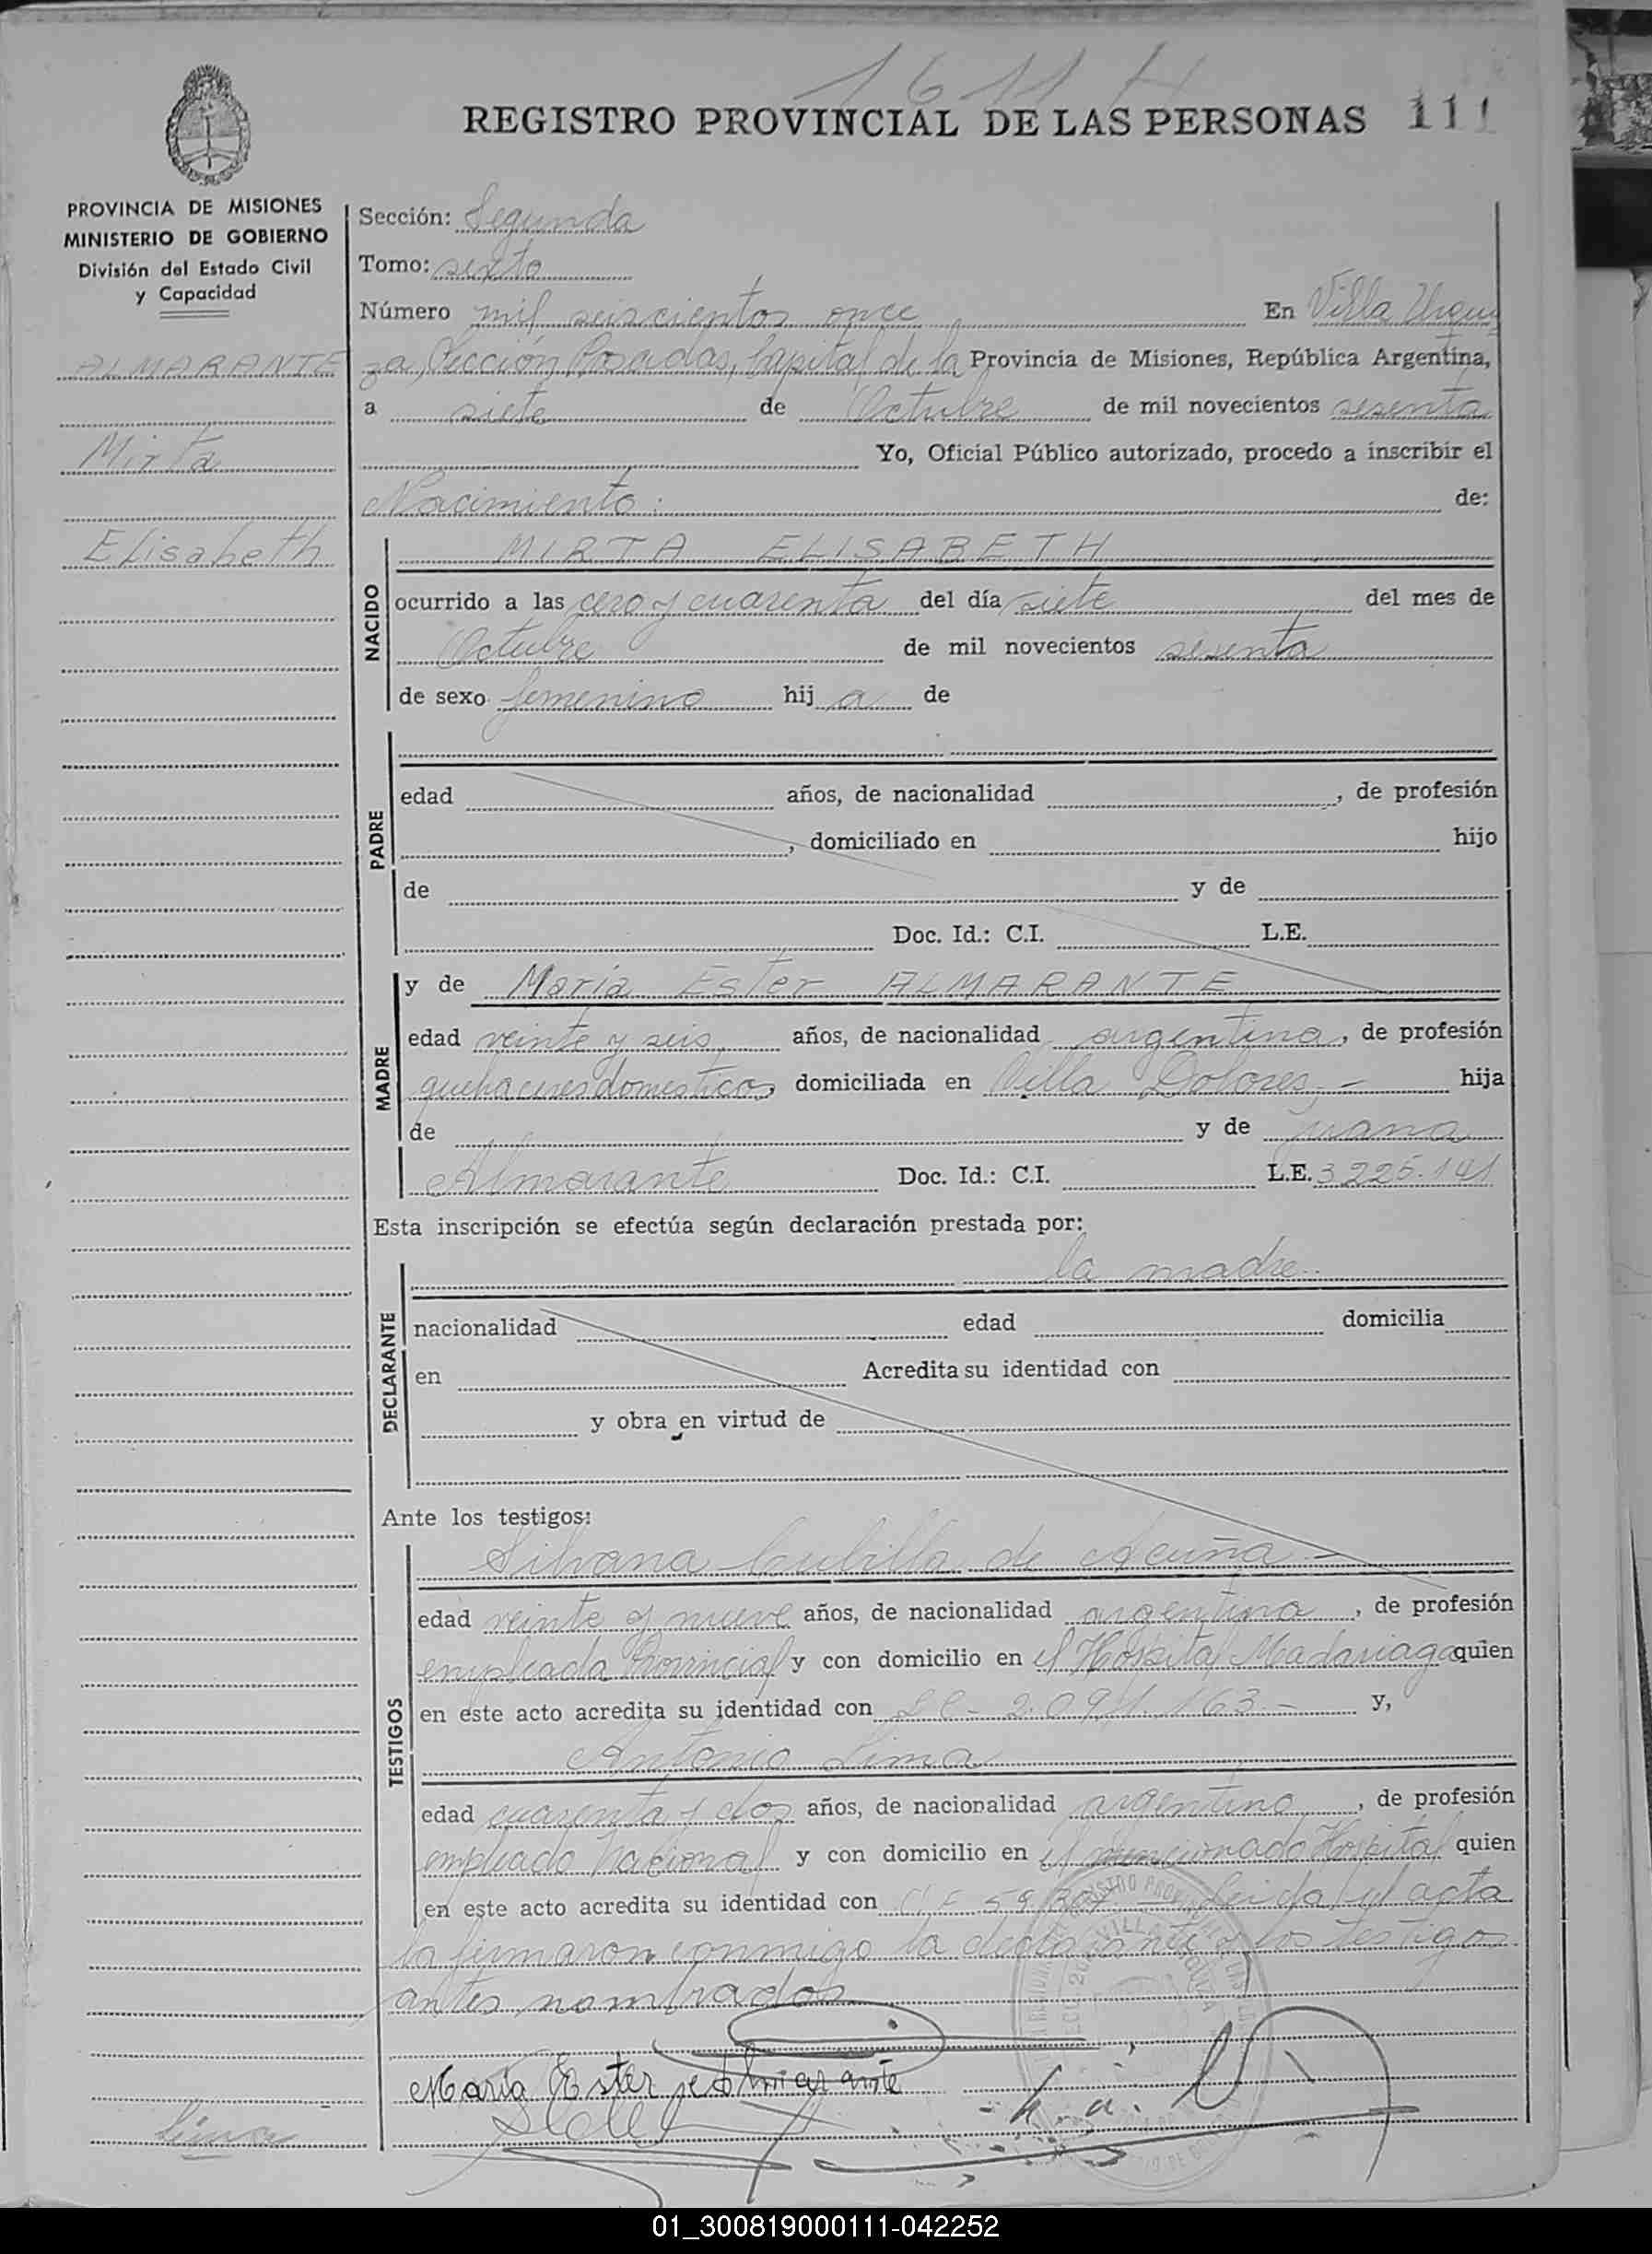 1611 H
REGISTRO PROVINCIAL DE LAS PERSONAS 111
PROVINCIA DE MISIONES
MINISTERIO DE GOBIERNO
División del Estado Civil
y Capacidad
ALMARANTE
Mirta
Elisabeth
Sección: Segunda
Tomo: sexto
Número mil seiscientos once En Villa Urqui
za, Sección Posadas, Capital de la Provincia de Misiones, República Argentina,
a siete de Octubre de mil novecientos sesenta
Yo, Oficial Público autorizado, procedo a inscribir el
Nacimiento: de:
NACIDO
MIRTA ELISABETH
ocurrido a las cero y cuarenta del día siete del mes de
Octubre de mil novecientos sesenta
de sexo femenino hij a de
PADRE
edad años, de nacionalidad , de profesión
, domiciliado en hijo
de y de
Doc. Id.: C.I. L.E.
MADRE
y de María Ester ALMARANTE
edad veinte y seis años, de nacionalidad argentina, de profesión
quehaceres domesticos, domiciliada en Villa Dolores.- hija
de y de Juana
Almarante Doc. Id.: C.I. L.E. 3225.141
Esta inscripción se efectúa según declaración prestada por:
DECLARANTE
la madre.
nacionalidad edad domicilia
en Acredita su identidad con
y obra en virtud de
Ante los testigos:
TESTIGOS
Silvana Cubilla de Acuña.-
edad veinte y nueve años, de nacionalidad argentina, de profesión
empleada Provincial y con domicilio en el Hospital Madariaga quien
en este acto acredita su identidad con LC- 2.091.163.- y,
Antonio Lima
edad cuarenta y dos años, de nacionalidad argentino, de profesión
empleado Nacional y con domicilio en el mencionado Hospital quien
en este acto acredita su identidad con Leida el acta
la firmaron conmigo la declarante y los testigos
antes nombrados
María Ester Almarante
Lima
01_300819000111-042252